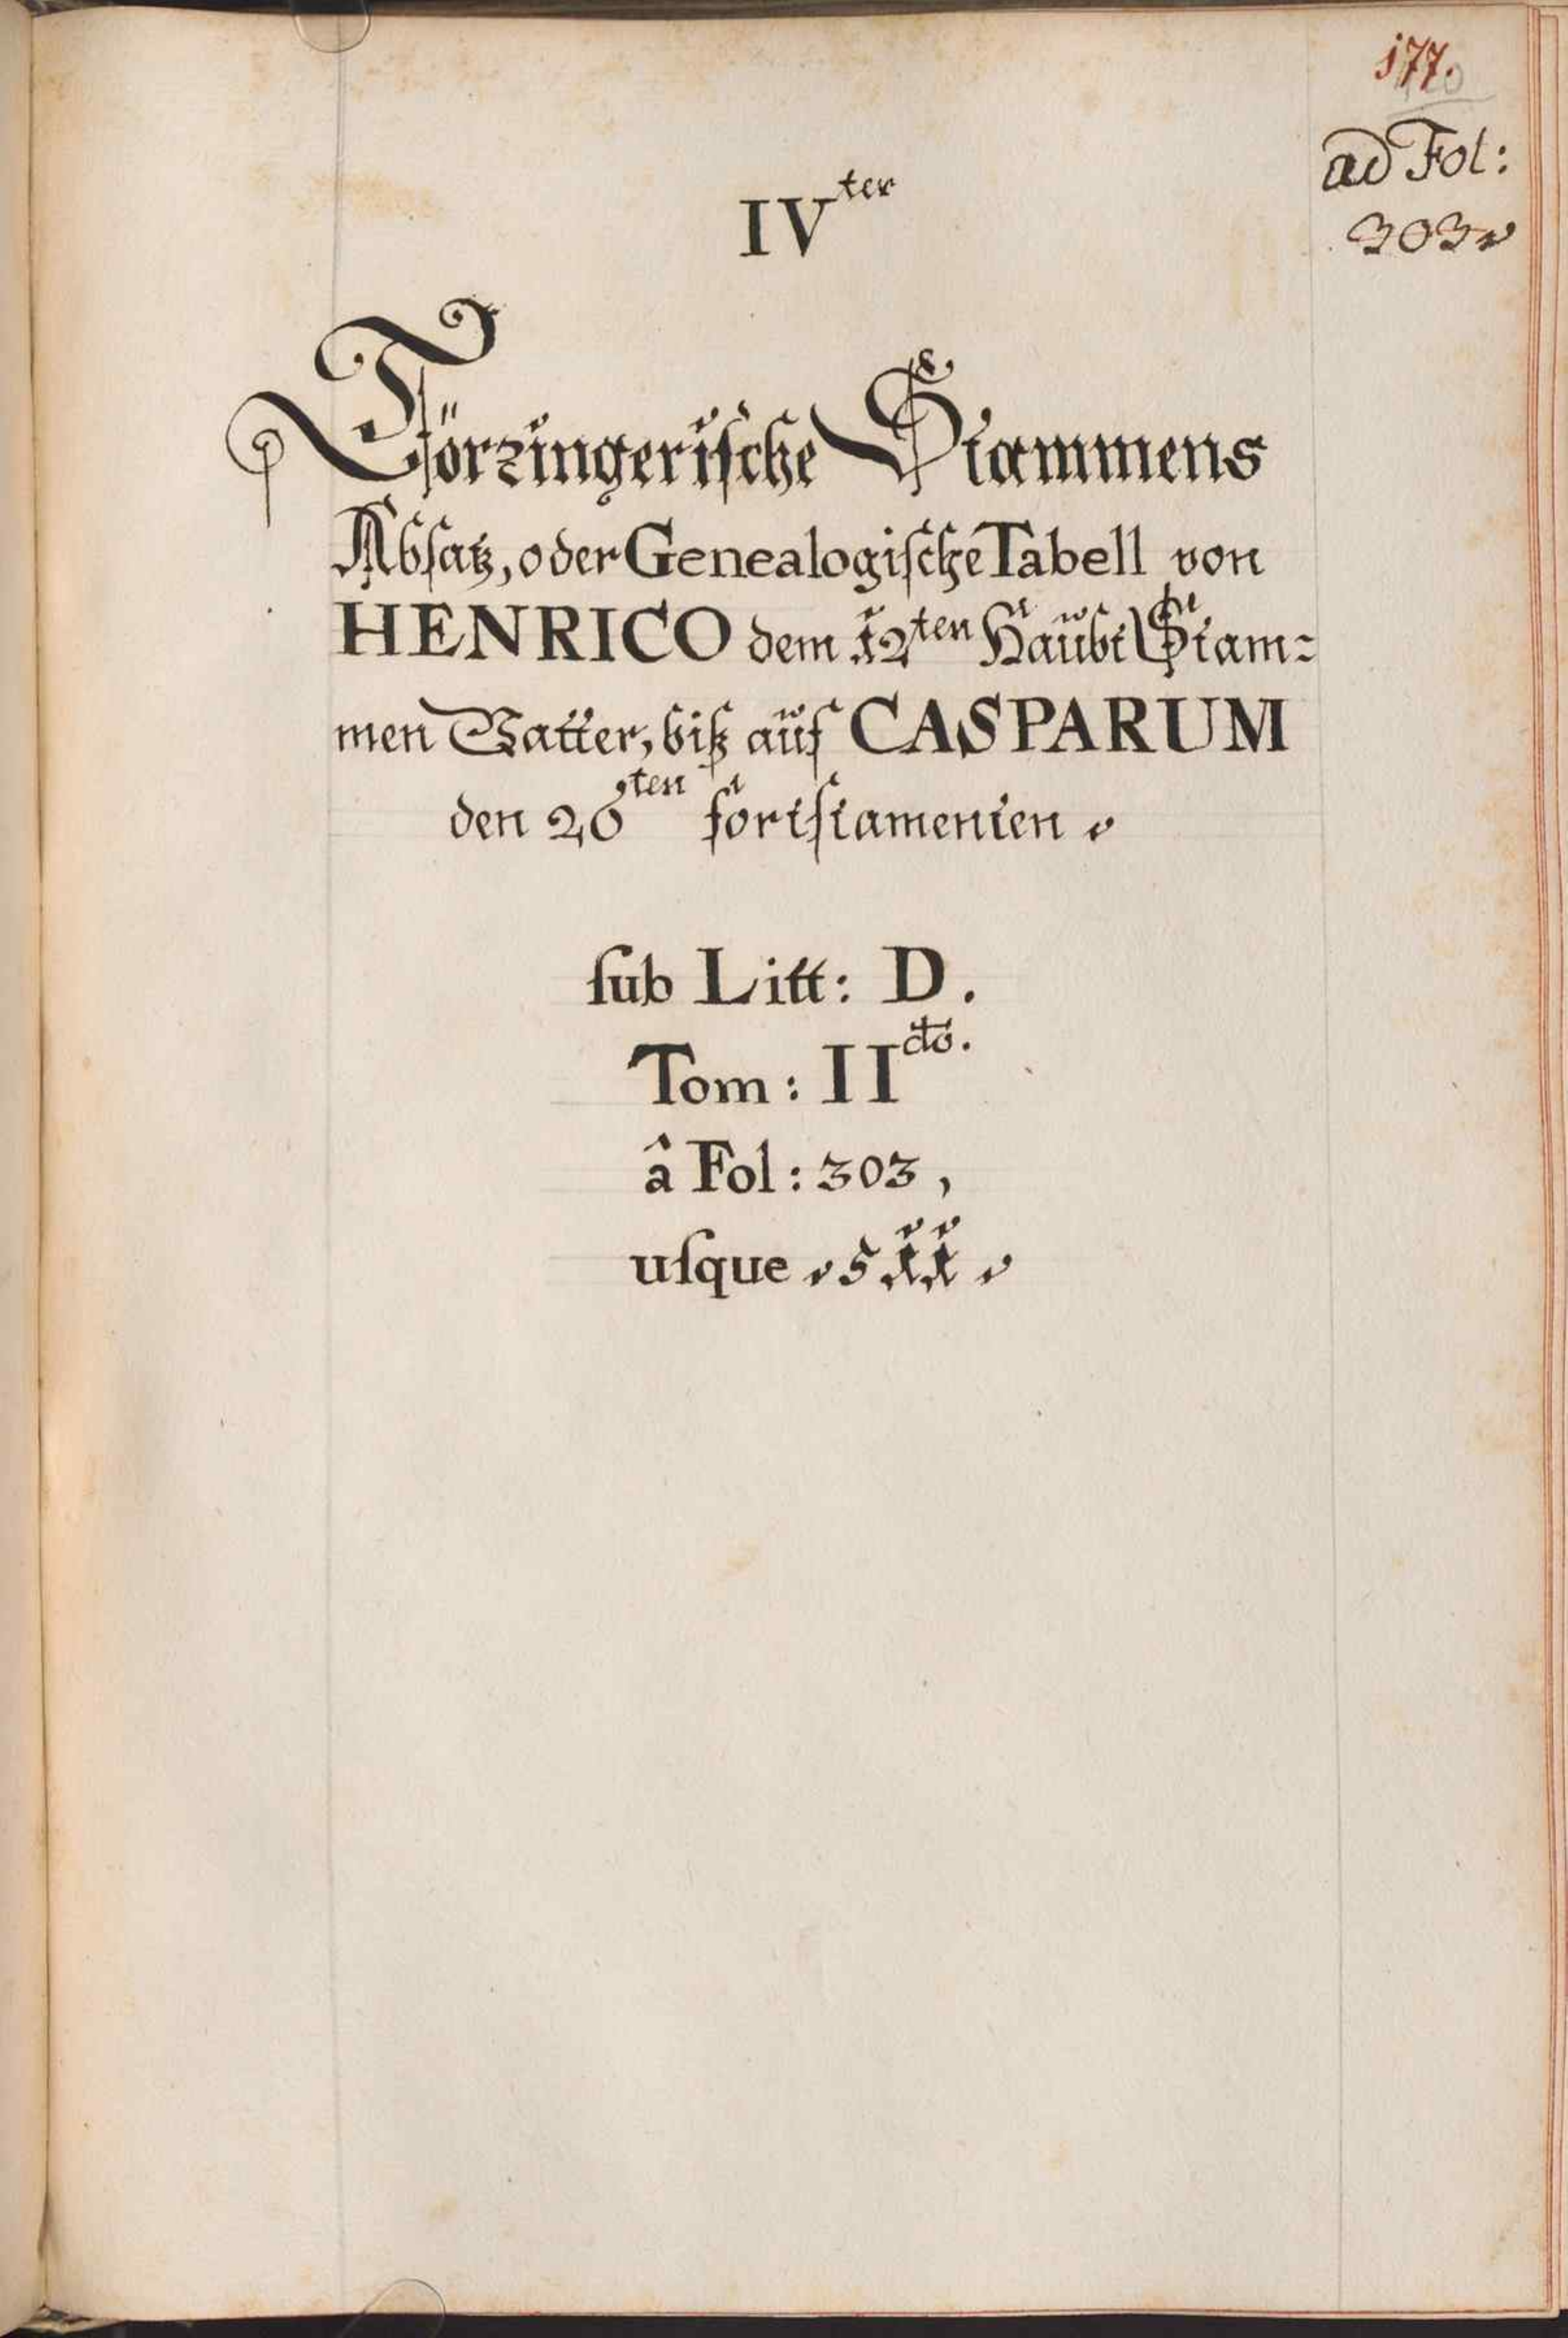 177.
ad Fol:
303
IV^ter
Törzingerische Stammens
Absatz, oder Genealogische Tabell von
HENRICO dem 12^ten Haubt Stam=
men Vatter, biß auf CASPARUM
den 20^ten fortstamenten
sub Litt: D.
Tom: II^do.
â Fol: 303,
usque 511